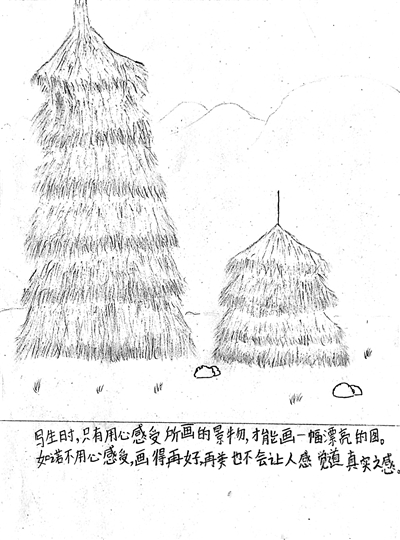 写生时,只有用心感受所画的景物,才能画一幅漂亮的图。
如诺不用心感受,画得再好,再美也不会让人感觉道真实之感。